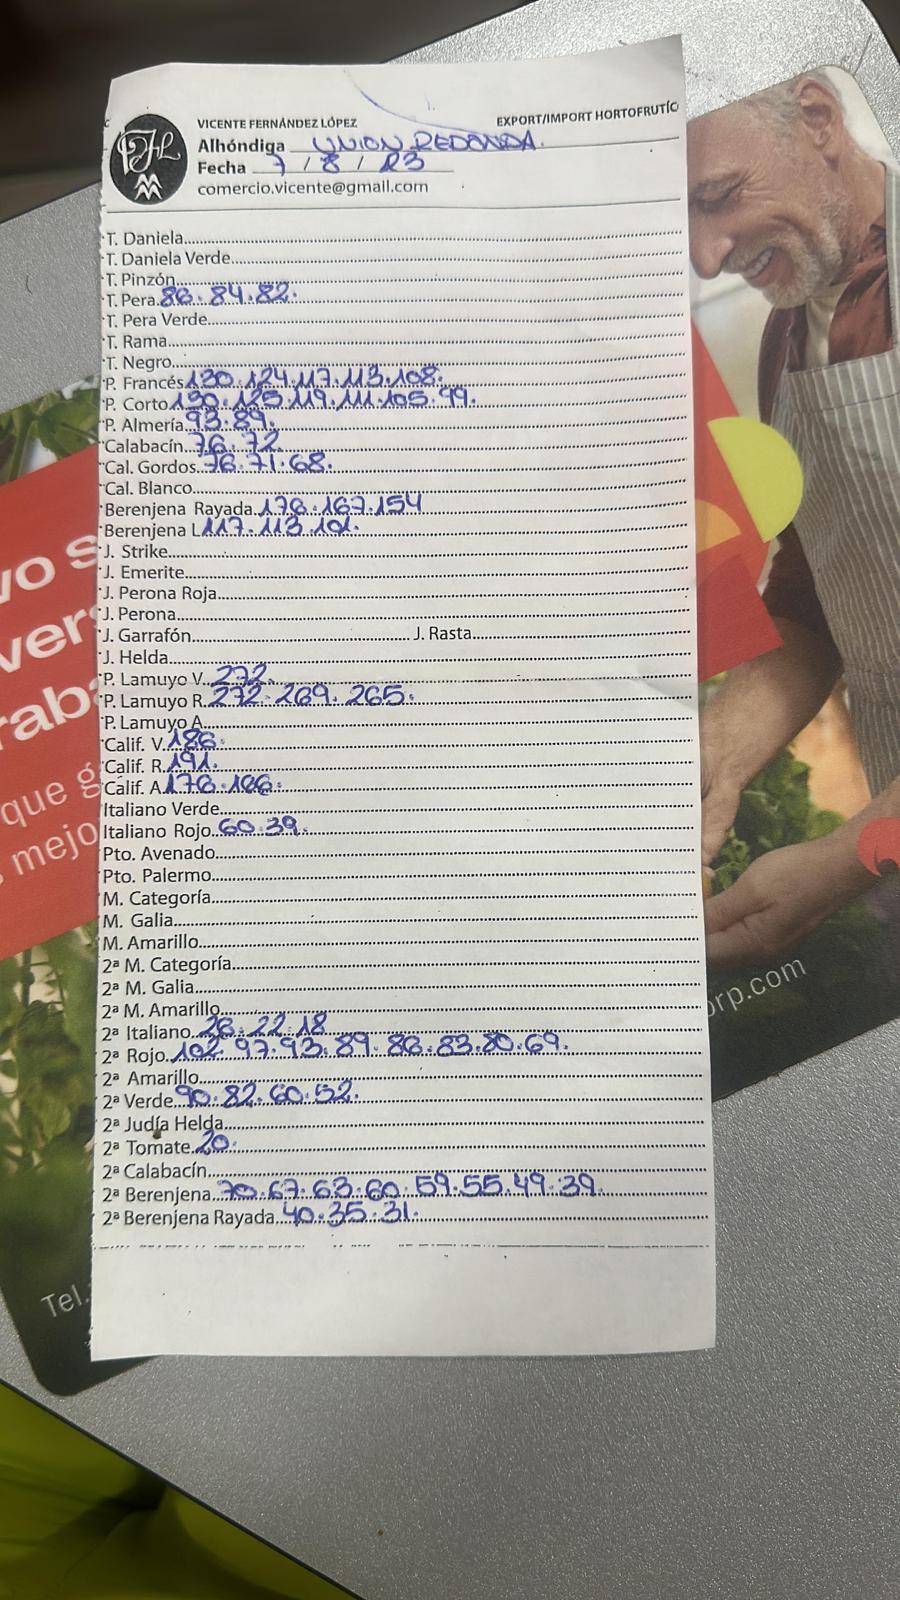 VICENTE FERNÁNDEZ LÓPEZ
EXPORT/IMPORT HORTOFRUTÍC
Alhóndiga UNION REDONDA.
Fecha 7 / 8 / 23
comercio.vicente@gmail.com
T. Daniela
T. Daniela Verde
T. Pinzón
T. Pera 86. 84. 82.
T. Pera Verde
T. Rama
T. Negro
P. Francés 130. 124. 117. 113. 108.
P. Corto 130. 125. 119. 111. 105. 99.
P. Almería 93. 89.
Calabacín 76. 72
Cal. Gordos 76. 71. 68.
Cal. Blanco
Berenjena Rayada 178. 167. 154
Berenjena L 117. 113. 101.
J. Strike
J. Emerite
J. Perona Roja
J. Perona
J. Garrafón J. Rasta
J. Helda
P. Lamuyo V. 272.
P. Lamuyo R. 272. 269. 265.
P. Lamuyo A
Calif. V. 186.
Calif. R. 191.
Calif. A. 176. 166.
Italiano Verde
Italiano Rojo 60. 39.
Pto. Avenado
Pto. Palermo
M. Categoría
M. Galia
M. Amarillo
2ª M. Categoría
2ª M. Galia
2ª M. Amarillo
2ª Italiano 26. 22. 18
2ª Rojo 102. 97. 93. 89. 86. 83. 80. 69.
2ª Amarillo
2ª Verde 90. 82. 60. 52.
2ª Judía Helda
2ª Tomate 20.
2ª Calabacín
2ª Berenjena 70. 67. 63. 60. 59. 55. 49. 39.
2ª Berenjena Rayada 40. 35. 31.
vo s
vers
raba
que g
mejo
orp.com
Tel.